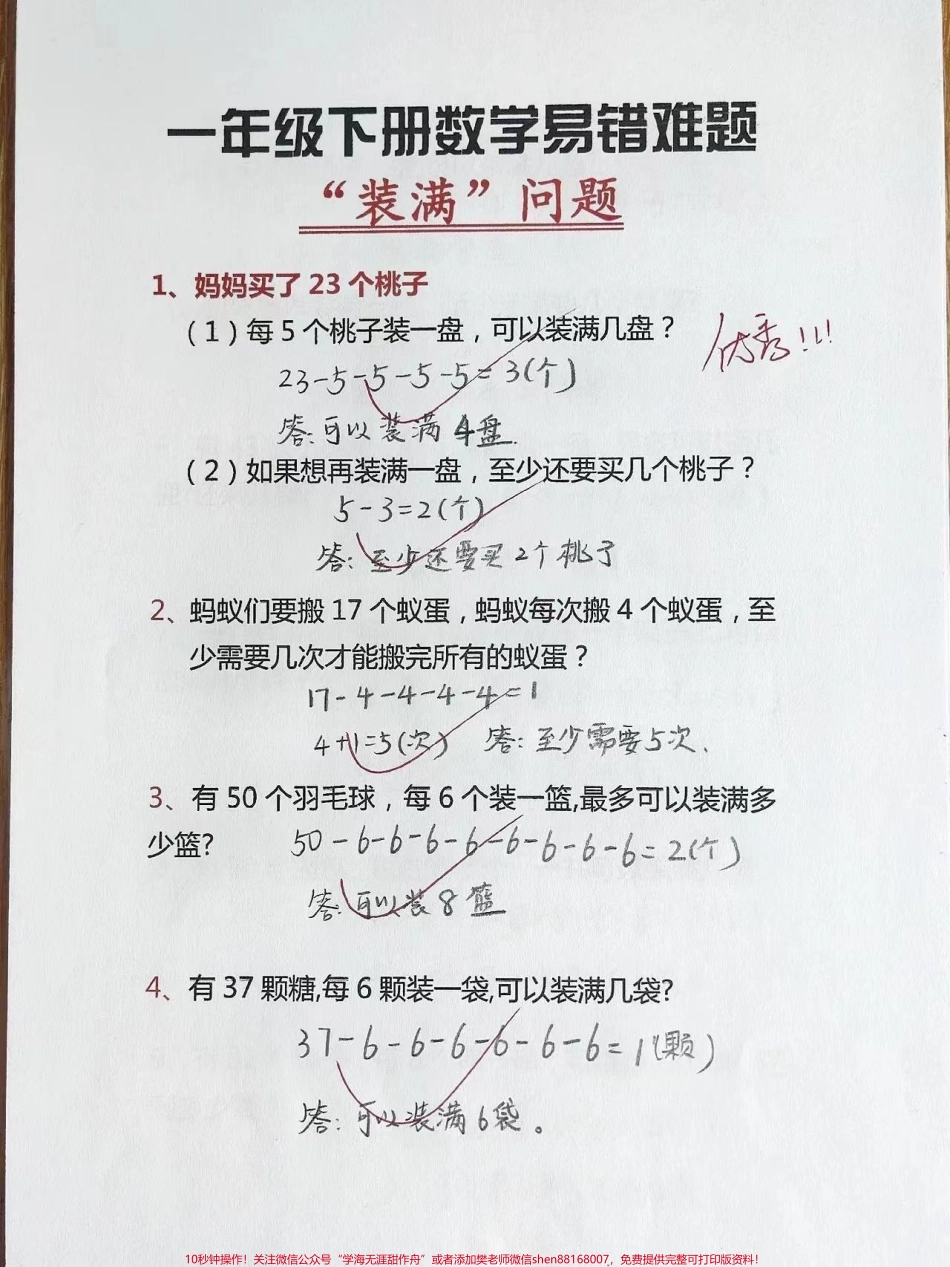 一年级下册数学易错难题
“装满”问题
1、妈妈买了 23 个桃子
（1）每 5 个桃子装一盘，可以装满几盘？
优秀!!!
23-5-5-5-5=3(个)
答:可以装满4盘.
（2）如果想再装满一盘，至少还要买几个桃子？
5-3=2(个)
答:至少还要买2个桃子
2、蚂蚁们要搬 17 个蚁蛋，蚂蚁每次搬 4 个蚁蛋，至
少需要几次才能搬完所有的蚁蛋？
17-4-4-4-4=1
4+1=5(次) 答:至少需要5次.
3、有 50 个羽毛球，每 6 个装一篮,最多可以装满多
少篮?
50-6-6-6-6-6-6-6-6=2(个)
答:可以装8篮
4、有 37 颗糖,每 6 颗装一袋,可以装满几袋?
37-6-6-6-6-6-6=1(颗)
答:可以装满6袋。
10秒钟操作！关注微信公众号“学海无涯甜作舟”或者添加樊老师微信shen88168007,，免费提供完整可打印版资料！